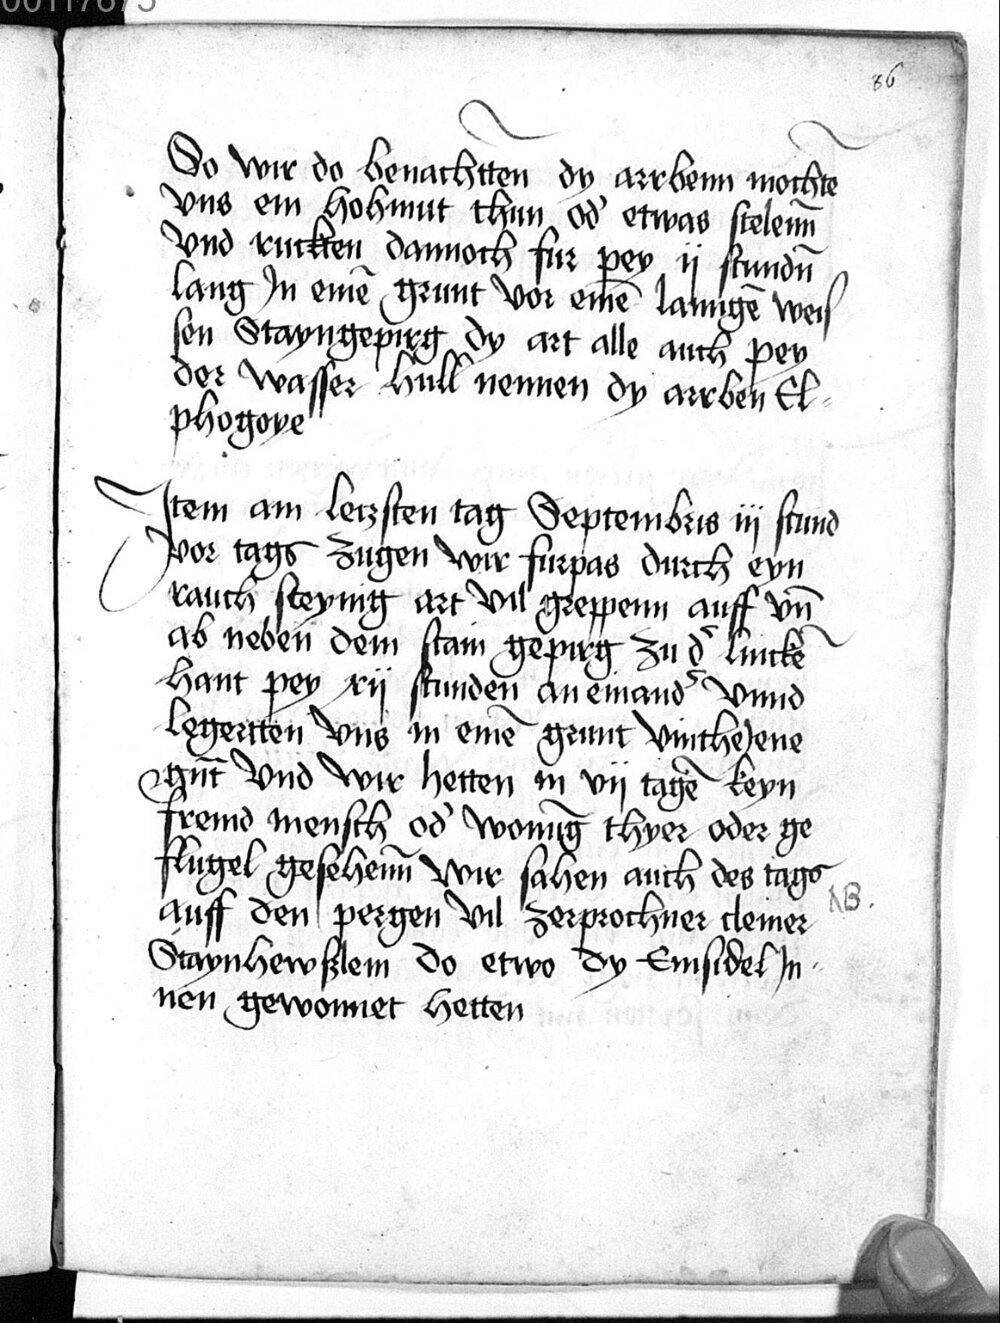 00117675
86
So wir do benachtten dy arrbenn mochte
vns ein hohmut thun od' etwas stelenn̄
Vnd ruckten dannoch fur pey ij stundn̄
lang Jn eine͂ grunt vor eine͂ lannge͂ weis
sen Stayngepirg dy art alle auch pey
der wasser hull nennen dy arrben El-
phogoye
Jtem am leczsten tag Septembris iij stund
vor tags Zugen wir furpas durch eyn
rauch steynig art vil greppenn auff vn̄
ab neben dem stain gepirg zu d' lincke͂
hant pey xij stunden an einand' vnnd
legertten vns in eine͂ grunt vinthejene
gn̄t vnd wir hetten in vij tage͂ keyn
fremd mensch od' woning thyer oder ge
flugel gesehenn̄ wir sahen auch des tags
auff den pergen vil zerprochner clemer
NB.
Staynhewßlein do etwo dy Einsidel Jn-
nen gewonnet hetten